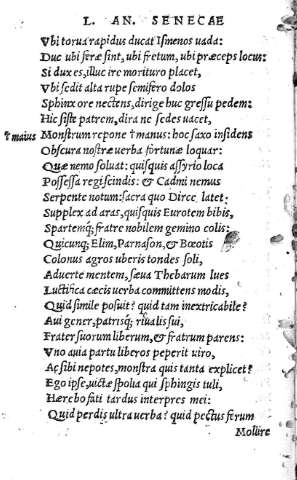 L. AN. SENECAE
Vbi torua rapidus ducat Ismenos uada:
Duc ubi feræ sint, ubi fretum, ubi præceps locus:
Si dux es, illuc ire morituro placet,
Vbi sedit alta rupe semifero dolos
Sphinx ore nectens, dirige huc gressu pedem:
Hic siste patrem, dira ne sedes uacet,
† maius Monstrum repone † manus: hoc saxo insidens
Obscura nostræ uerba fortunæ loquar:
Quæ nemo soluat: quisquis assyrio loca
Possessa regi scindis: & Cadmi nemus
Serpente notum: sacra quo Dirce latet:
Supplex ad aras, quisquis Eurotem bibis,
Spartemq; fratre nobilem gemino colis:
Quicunq; Elim, Parnason, & Bœotis
Colonus agros uberis tondes soli,
Aduerte mentem, sæua Thebarum lues
Luctifica cæcis uerba committens modis,
Quid simile posuit? quid tam inextricabile?
Aui gener, patrisq; riualis sui,
Frater suorum liberum, & fratrum parens:
Vno auia partu liberos peperit uiro,
Ac sibi nepotes, monstra quis tanta explicet?
Ego ipse, uictæ spolia qui sphingis tuli,
Hærebo fati tardus interpres mei:
Quid perdis ultra uerba? quid pectus ferum
Mollire